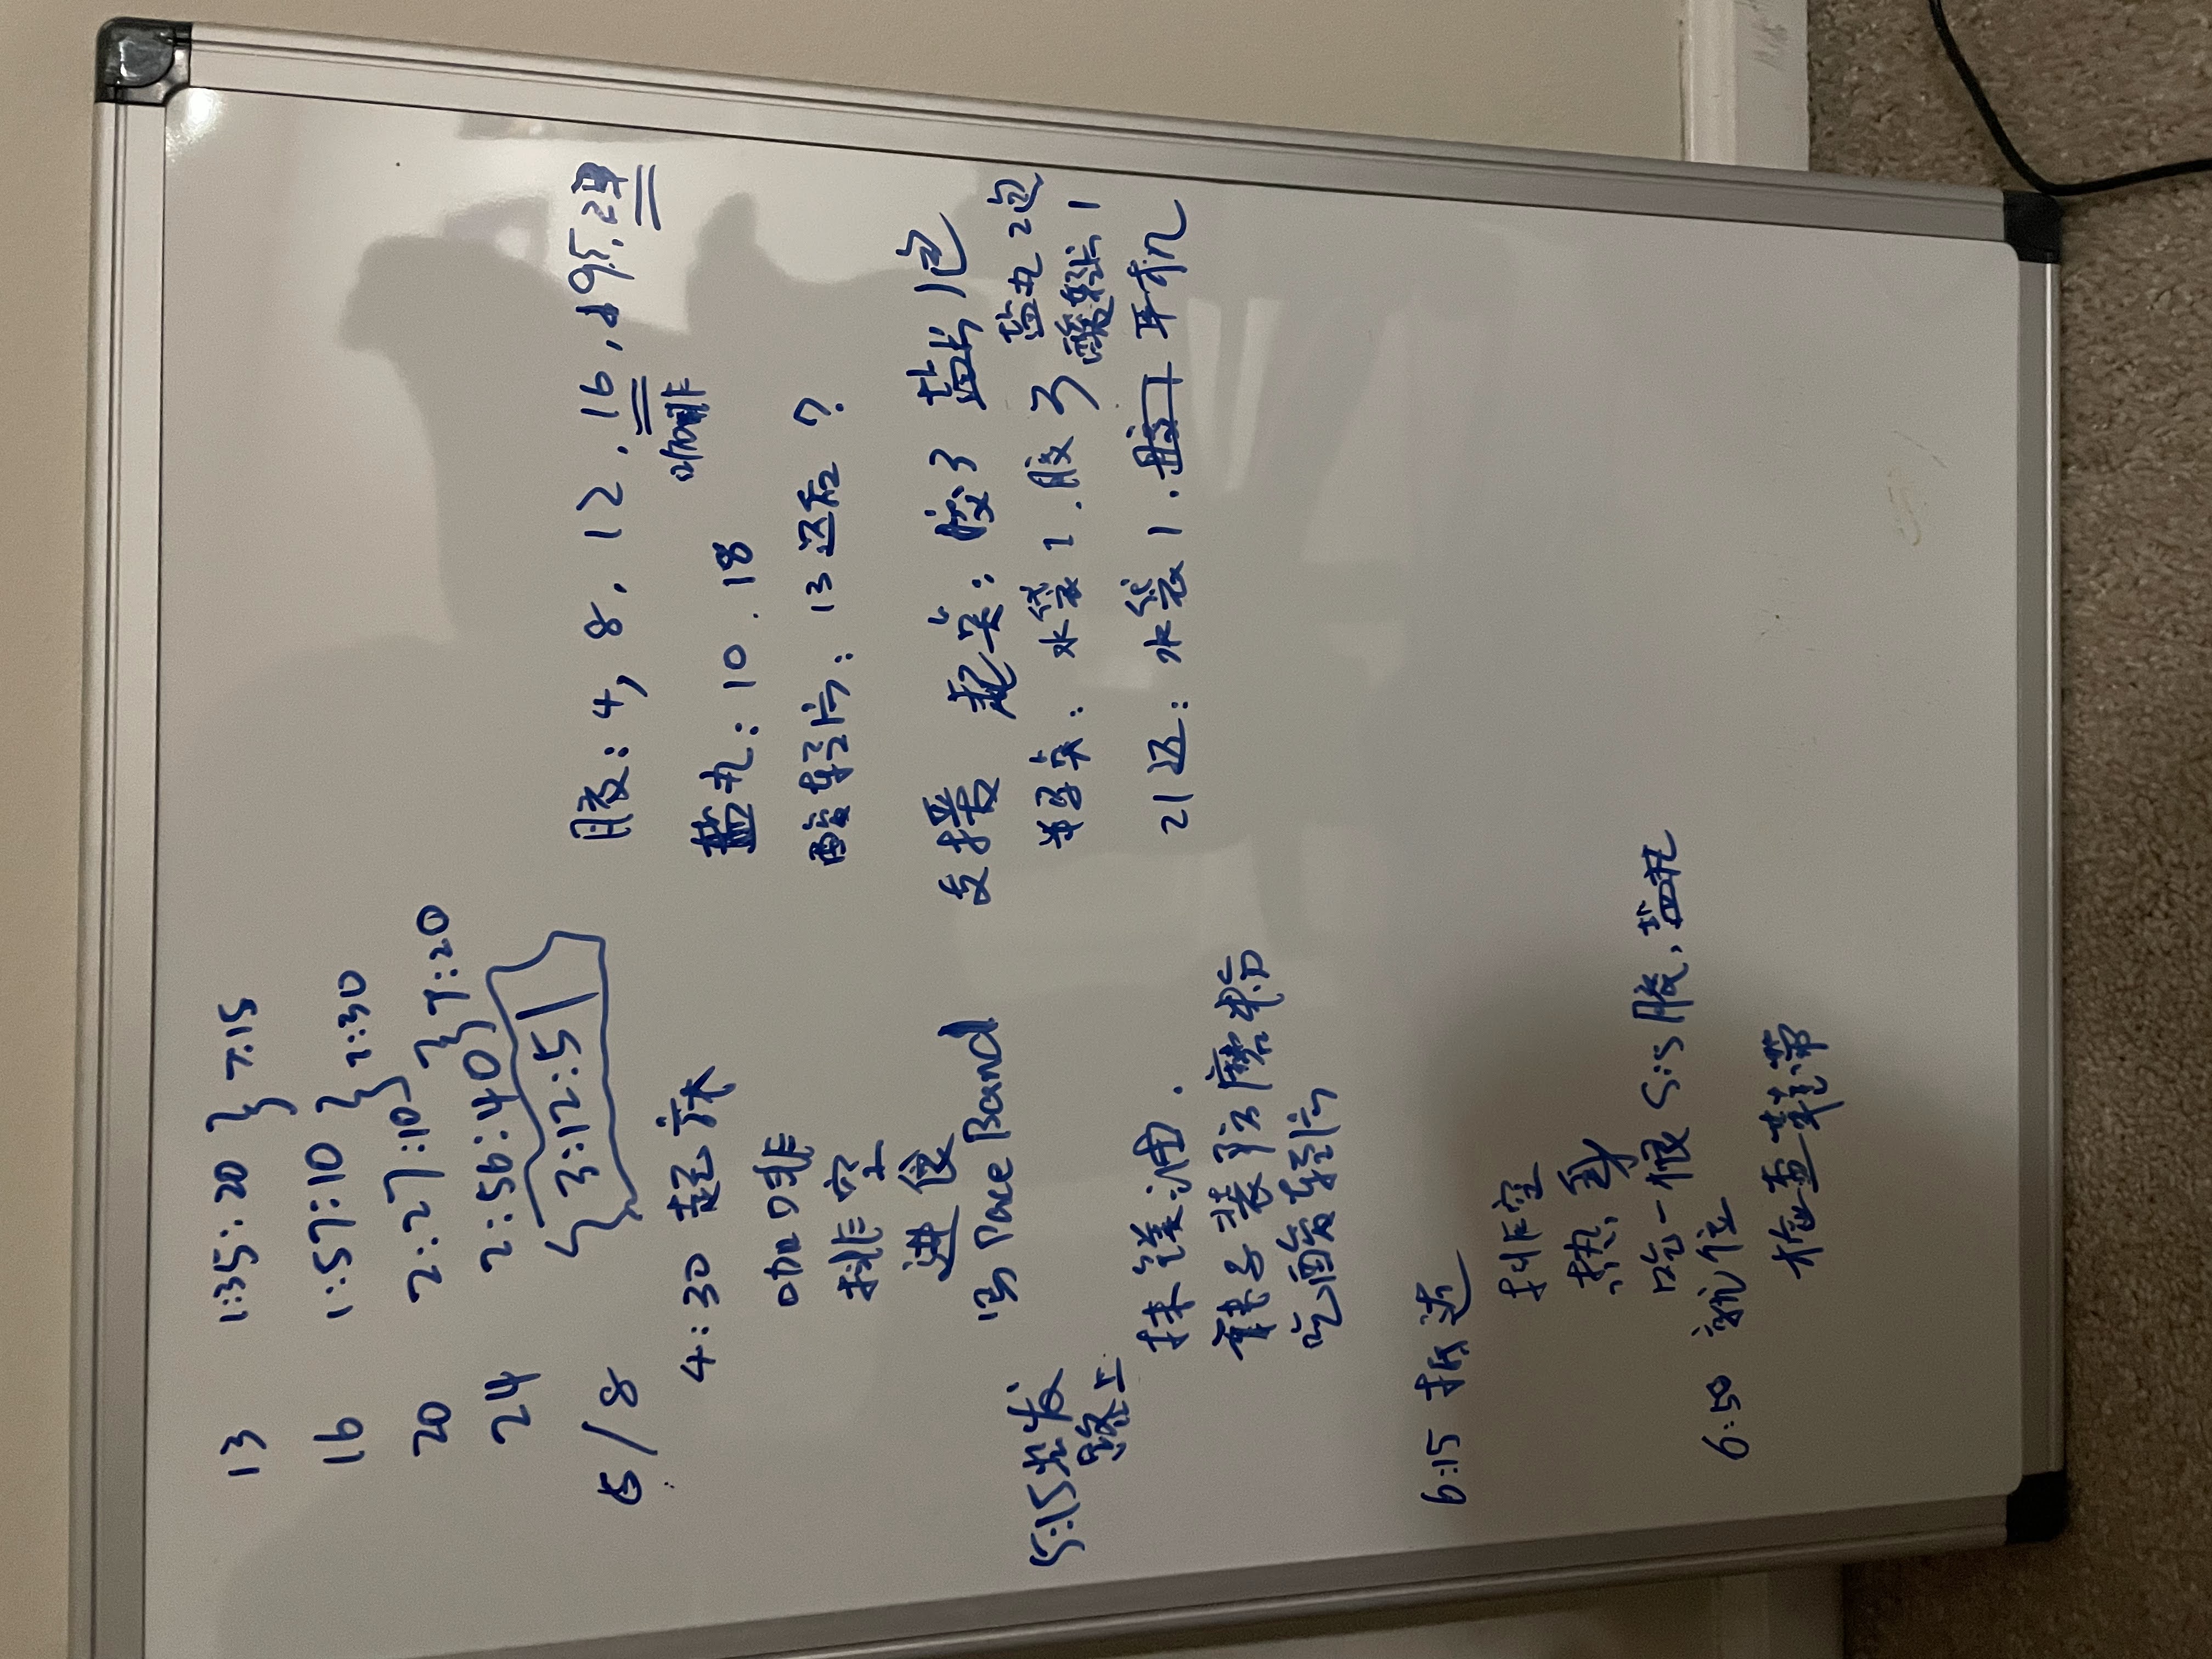 13 1:35:20 } 7:15
16 1:57:10
20 2:27:10 } 7:30
24 2:56:40 } 7:20
3:12:51
5/8
4:30 起床
咖啡
排空
进食
写 Pace Band
5:15出发
路上
抹镁油.
鞋子装防磨粉
吃酸轻片
6:15 抵达
排空
热身
吃一根 SiS胶, 盐丸
6:50 就位
检查鞋带
胶: 4, 8, 12, 16, 19.5,
咖啡
盐丸: 10, 18
酸轻片: 13迈后?
支援 起点: 胶3 盐丸1包
半马点: 水袋1, 胶3 盐丸2包
酸轻片1
21迈: 水袋1, 耳机